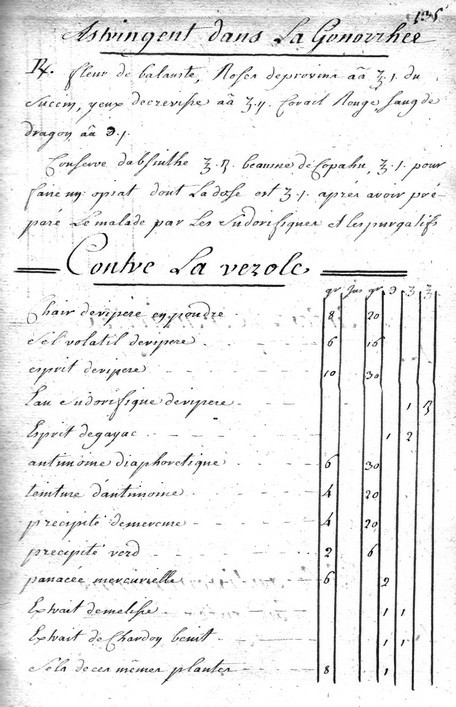 Astringent dans La Gonorrhée
℞. fleur de balauste, Roses deprovins aã ʒ.1. du
Succin, yeux decrevisse aã ʒ.ij. Corail Rouge, sang de
dragon, aã ℈.1.
Conserve d'absinthe ℥.ß. beaume de Copahu, ʒ.1. pour
faire un opiat dont La dose est ʒ.1. après avoir pré-
paré Le malade par Les Sudorifiques et les purgatifs
Contre La verole
gr jus gr ℈ ʒ ℥
Chair devipere en poudre 8 20
Sel volatil devipere 6 16
esprit devipere 10 30
Eau Sudorifique devipere 1 ß
Esprit degayac 1 2
antimoine diaphoretique 6 30
teinture d'antimoine 4 20
précipité demercure 4 20
precipité verd 2 6
panacée mercurielle 6 2
Extrait demelisse 1 1
Extrait de Chardon benit 1 1
Sels de ces mêmes plantes 8 1